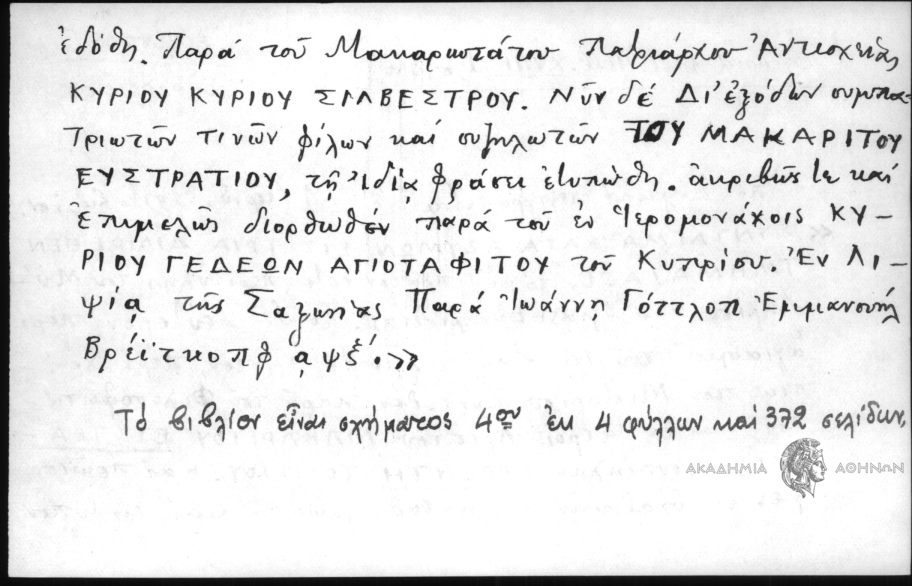 ἐδόθη. Παρά τοῦ Μακαριωτάτου Πατριάρχου Ἀντιοχείας
ΚΥΡΙΟΥ ΚΥΡΙΟΥ ΣΙΛΒΕΣΤΡΟΥ. Νῦν δέ Δι' ἐξόδων συμπα-
τριωτῶν τινῶν φίλων καί συζηλωτῶν ΤΟΥ ΜΑΚΑΡΙΤΟΥ
ΕΥΣΤΡΑΤΙΟΥ, τῇ Ἰδίᾳ φράσει ἐτυπώθη. ἀκριβῶς τε καί
ἐπιμελῶς διορθωθέν παρά τοῦ ἐν Ἱερομονάχοις ΚΥ-
ΡΙΟΥ ΓΕΔΕΩΝ ΑΓΙΟΤΑΦΙΤΟΥ τοῦ Κυπρίου. Ἐν Λι-
ψίᾳ τῆς Σαξωνίας Παρά Ἰωάννῃ Γόττλοπ Ἐμμανουήλ
Βρέϊτκοπφ ͵αψξ΄.»
Τό βιβλίον εἶναι σχήματος 4ου ἐκ 4 φύλλων καί 372 σελίδων,
ΑΚΑΔΗΜΙΑ ΑΘΗΝΩΝ